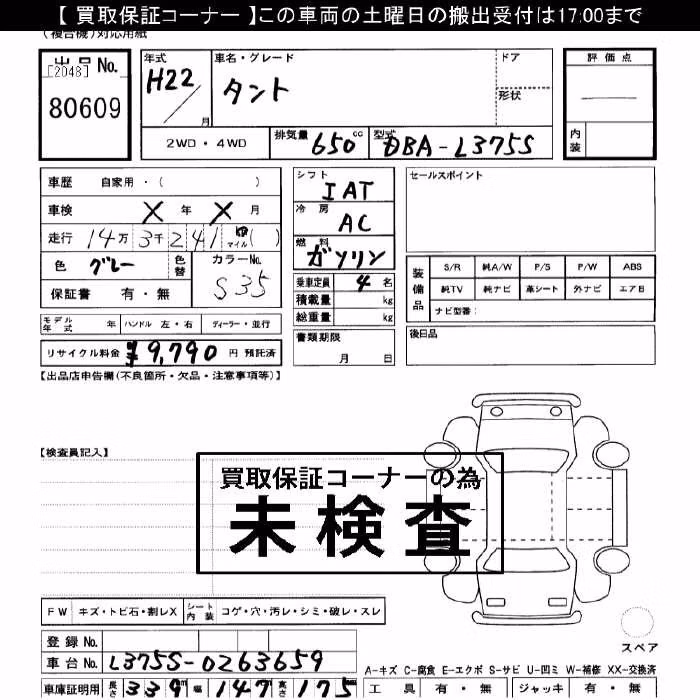 【 買取保証コーナー 】この車両の土曜日の搬出受付は17:00まで
(複合機)対応用紙
出品 No.
[2048]
80609
年式
H22
月
車名・グレード
タント
ドア
形状
評価点
内装
2WD ・ 4WD
排気量 650 cc
型式 DBA-L375S
車歴 自家用・( )
車検 X 年 X 月
走行 14万3千241 マイル( )
色 グレー
色替
カラーNo. S35
保証書 有・無
シフト IAT
冷房 AC
燃料 ガソリン
乗車定員 4 名
積載量 kg
総重量 kg
書類期限
月 日
セールスポイント
装備品
S/R 純A/W P/S P/W ABS
純TV 純ナビ 革シート 外ナビ エアB
ナビ型番:
後日品
モデル年式 年 ハンドル 左・右 ディーラー・並行
リサイクル料金 ¥9,790 円 預託済
【出品店申告欄(不良箇所・欠品・注意事項等)】
【検査員記入】
買取保証コーナーの為
未検査
FW キズ・トビ石・割レX シート内装 コゲ・穴・汚レ・シミ・破レ・スレ
登録 No.
車台 No. L375S-0263659
車庫証明用 長さ 339 幅 147 高さ 175
スペア
A-キズ C-腐食 E-エクボ S-サビ U-凹ミ W-補修 XX-交換済
工具 有・無 ジャッキ 有・無